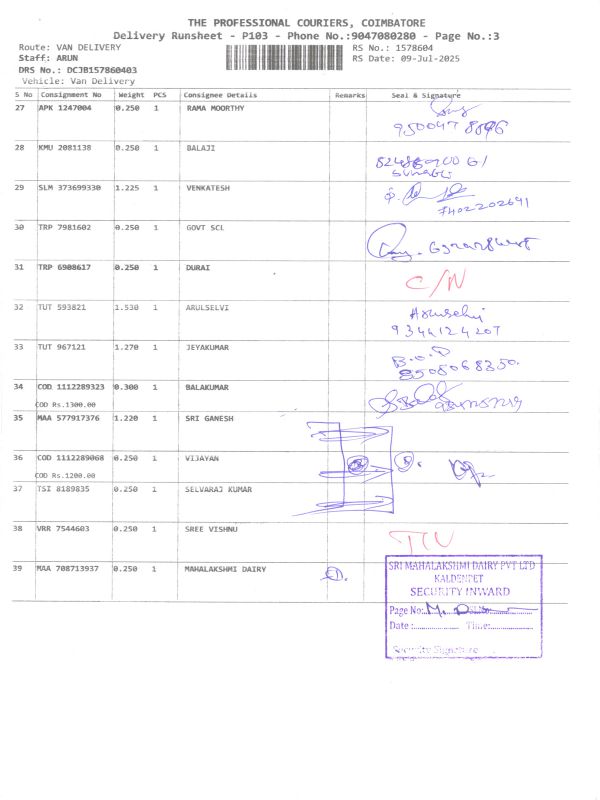 THE PROFESSIONAL COURIERS, COIMBATORE
Delivery Runsheet - P103 - Phone No.:9047080280 - Page No.:3
Route: VAN DELIVERY RS No.: 1578604
Staff: ARUN RS Date: 09-Jul-2025
DRS No.: DCJB157860403
Vehicle: Van Delivery
S No Consignment No Weight PCS Consignee Details Remarks Seal & Signature
27 APK 1247004 0.250 1 RAMA MOORTHY
28 KMU 2081138 0.250 1 BALAJI
29 SLM 373699330 1.225 1 VENKATESH
7402202641
30 TRP 7981602 0.250 1 GOVT SCL
31 TRP 6908617 0.250 1 DURAI C/N
32 TUT 593821 1.530 1 ARULSELVI Arulselvi
9344124207
33 TUT 967121 1.270 1 JEYAKUMAR B.O.D
8508068350.
34 COD 1112289323 0.300 1 BALAKUMAR
COD Rs.1300.00
35 MAA 577917376 1.220 1 SRI GANESH
36 COD 1112289068 0.250 1 VIJAYAN
COD Rs.1200.00
37 TSI 8189835 0.250 1 SELVARAJ KUMAR
38 VRR 7544603 0.250 1 SREE VISHNU
39 MAA 708713937 0.250 1 MAHALAKSHMI DAIRY
SRI MAHALAKSHMI DAIRY PVT LTD
SECURITY INWARD
Page No:
Date : Time:
Security Signature